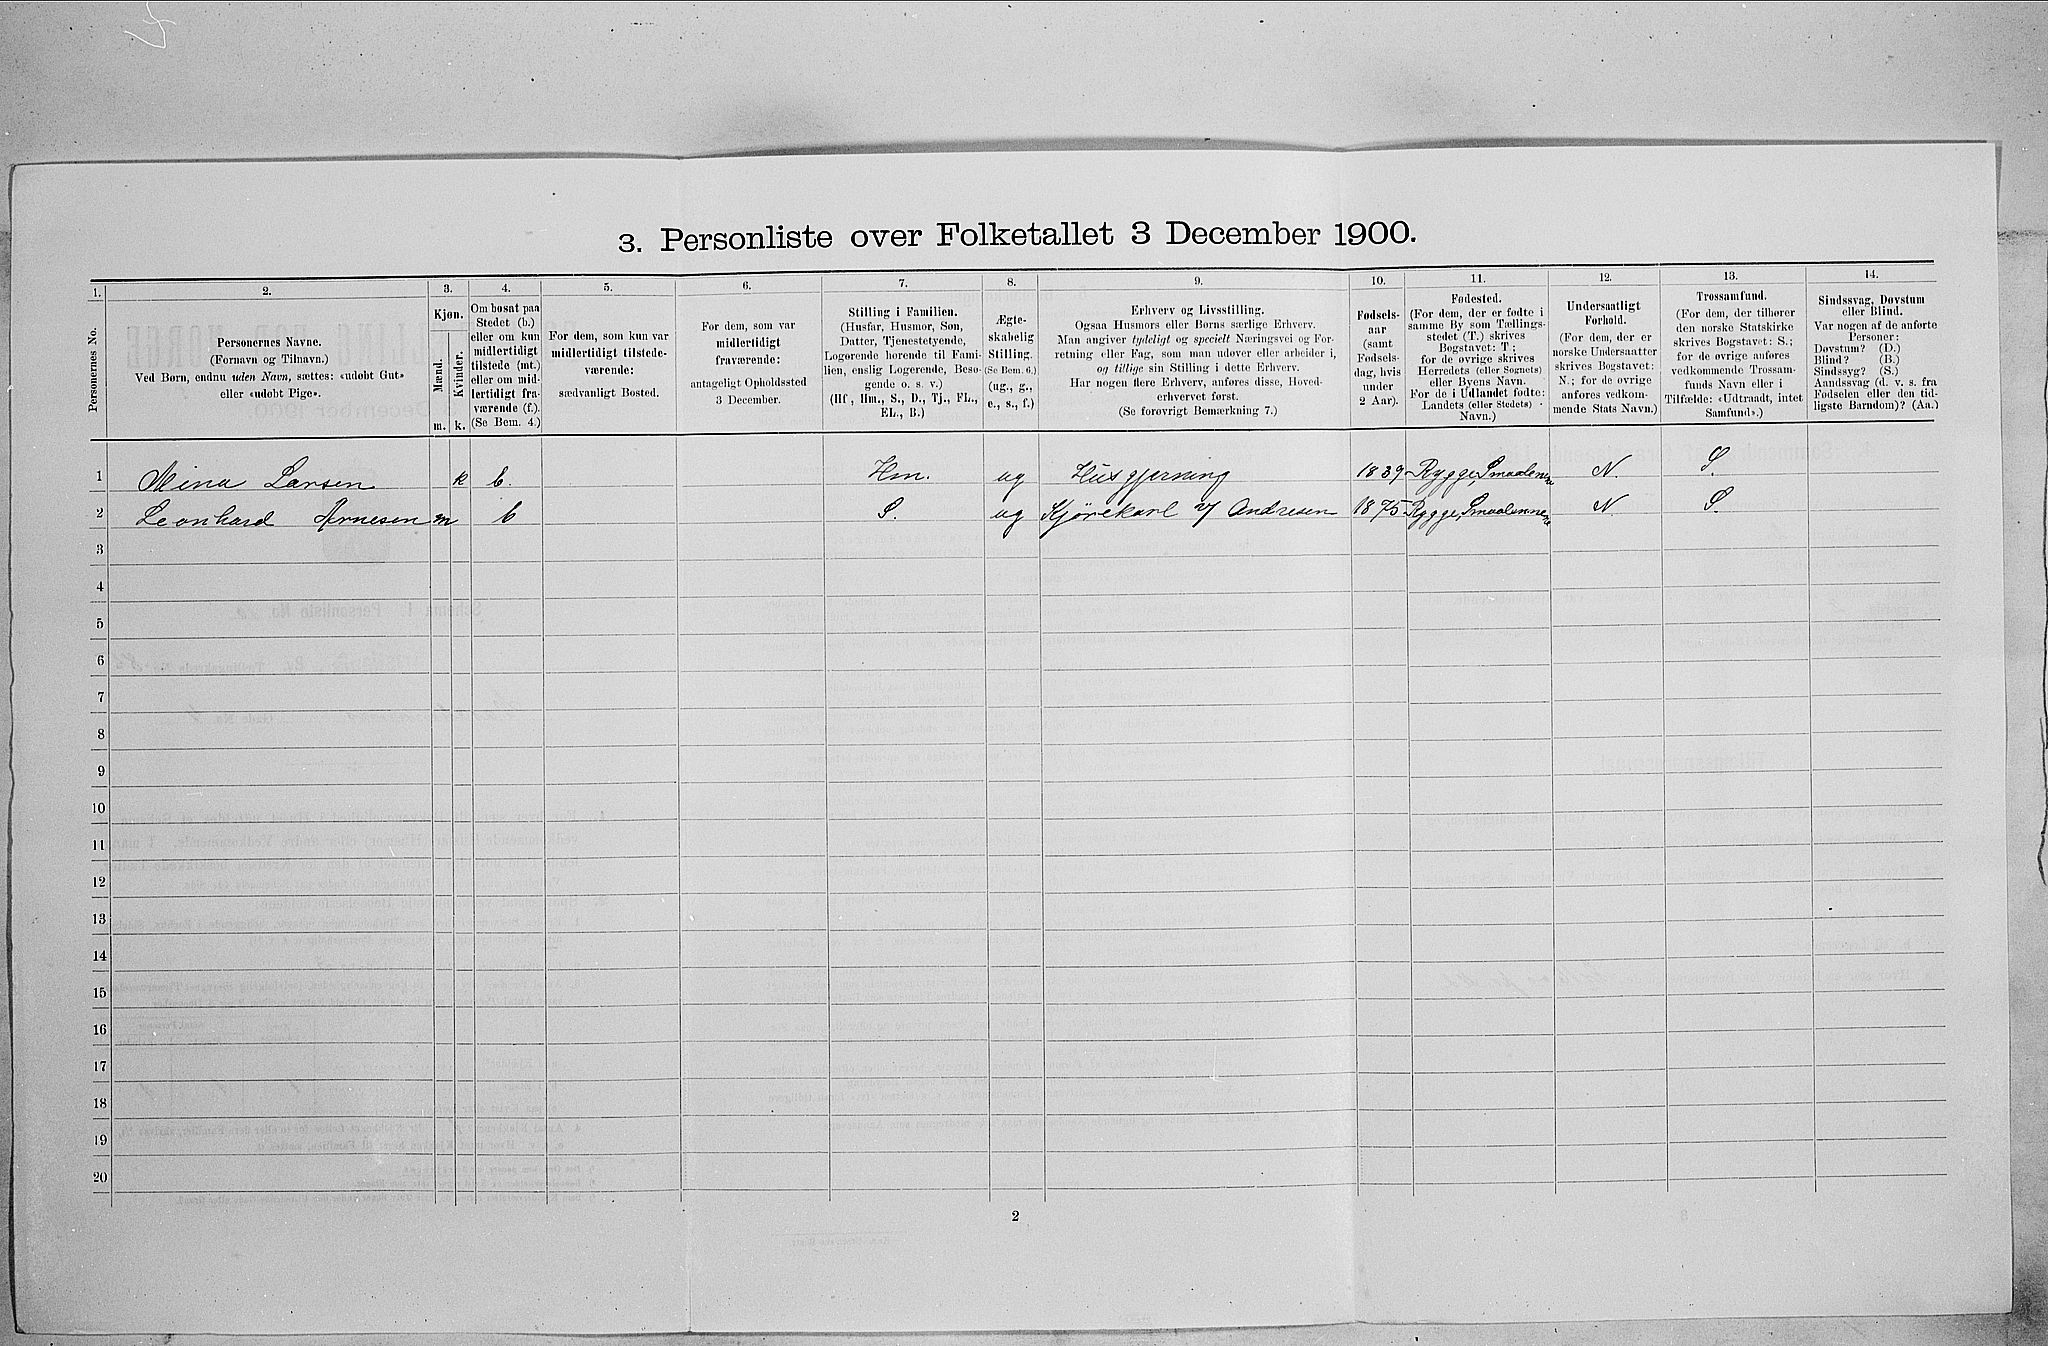 3. Personliste over Folketallet 3 December 1900.
1. 2. 3. 4. 5. 6. 7. 8. 9. 10. 11. 12. 13. 14.
Personernes No.
Personernes Navne.
(Fornavn og Tilnavn.)
Ved Børn, endnu uden Navn, sættes: «udøbt Gut»
eller «udøbt Pige».
Kjøn.
Mænd.
Kvinder.
m. k.
Om bosat paa
Stedet (b.)
eller om kun
midlertidigt
tilstede (mt.)
eller om mid-
lertidigt fra-
værende (f.).
(Se Bem. 4.)
For dem, som kun var
midlertidigt tilstede-
værende:
sædvanligt Bosted.
For dem, som var
midlertidigt
fraværende:
antageligt Opholdssted
3 December.
Stilling i Familien.
(Husfar, Husmor, Søn,
Datter, Tjenestetyende,
Logerende hørende til Fami-
lien, enslig Logerende, Besø-
gende o. s. v.)
(Hf., Hm., S., D., Tj., FL.,
EL., B.)
Ægte-
skabelig
Stilling.
(Se Bem. 6.)
(ug., g.,
e., s., f.)
Erhverv og Livsstilling.
Ogsaa Husmors eller Børns særlige Erhverv.
Man angiver tydeligt og specielt Næringsvei og For-
retning eller Fag, som man udøver eller arbeider i,
og tillige sin Stilling i dette Erhverv.
Har nogen flere Erhverv, anføres disse, Hoved-
erhvervet først.
(Se forøvrigt Bemærkning 7.)
Fødsels-
aar
(samt
Fødsels-
dag, hvis
under
2 Aar).
Fødested.
(For dem, der er fødte i
samme By som Tællings-
stedet (T.) skrives
Bogstavet: T;
for de øvrige skrives
Herredets (eller Sognets)
eller Byens Navn.
For de i Udlandet fødte:
Landets (eller Stedets)
Navn.)
Undersaatligt
Forhold.
(For dem, der er
norske Undersaatter
skrives Bogstavet:
N.; for de øvrige
anføres vedkom-
mende Stats Navn.)
Trossamfund.
(For dem, der tilhører
den norske Statskirke
skrives Bogstavet: S.;
for de øvrige anføres
vedkommende Trossam-
funds Navn eller i
Tilfælde: «Udtraadt, intet
Samfund».)
Sindssvag, Døvstum
eller Blind.
Var nogen af de anførte
Personer:
Døvstum? (D.)
Blind? (B.)
Sindssyg? (S.)
Aandssvag (d. v. s. fra
Fødselen eller den tid-
ligste Barndom)? (Aa.)
1 Mina Larsen k b. Hm. ug Husgjerning 1839 Rygge, Smaalenene N. S.
2 Leonhard Arnesen m b S. ug Kjørekarl v/ Andresen 1875 Rygge, Smaalenene N. S.
3
4
5
6
7
8
9
10
11
12
13
14
15
16
17
18
19
20
2